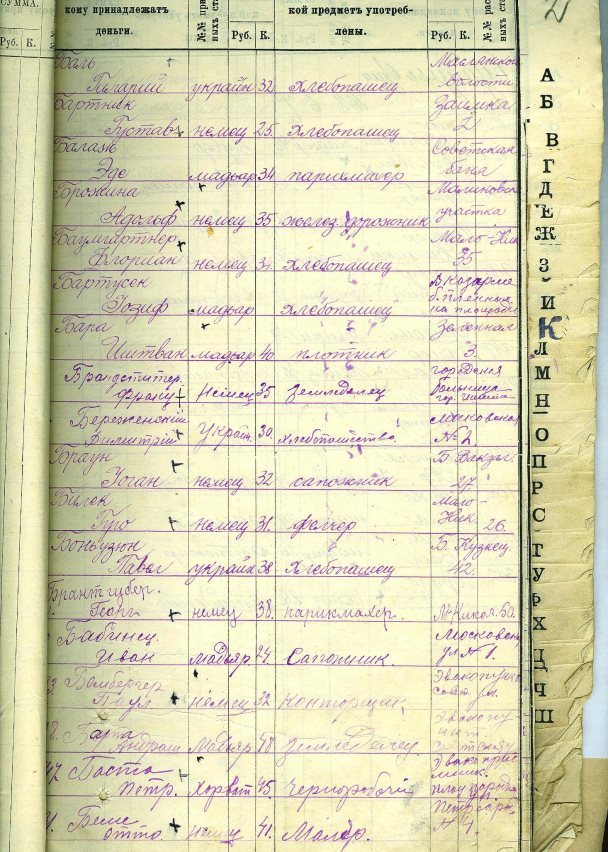 СУММА.
Руб. К.
кому принадлежатъ
деньги.
Руб. К.
кой предметъ употреб-
лены.
Руб. К.
Баль
украйн 32 Хлебопашец
волости
Бартник
Густав немец 25. Хлебопашец
Заимка
2
Балаж
Эде мадьяр 34 парикмахер
Советская
баня
Брожина
Адольф немец 35 желез. дорожник
участка
Баумгартнер
Флориан немец 31. Хлебопашец
Мало-Ник
35
Бартусек
Иозиф мадьяр Хлебопашец
В казарме
в. пленных
на площади
Бара
Иштван мадьяр 40 плотник
Зеленная
3.
Брандститер.
Франц Немец 35 Земледелец
городская
больница
Береженский
Димитрий Украин. 30. хлебопашество
Московская
№ 2
Браун
Иоган немец 32 сапожник
Б. Вокзал.
27
Билек
Гуго немец 31. фелчер
Мало-
Ник 26.
Боньузюк
Павел украйн 38 Хлебопашец
Б. Кузнец.
42.
Брантгубер.
Георг немец 38. парикмахер.
М. Никол. 50.
Бабинец
Иван Мадьяр 24. Сапожник.
Московск
ул № 1.
Бомбергер
Паул немец 32 Конторщик.
Эвакопункт
совет ул.
Барта
Андраш Мадьяр 48 Земледелец.
Эвакопу-
нкт.
Баста
Петр. Хорват 45. Чернорабочий
Беме
Отто. немец 41. Маляр.
№ 4.
2
А
Б
В
Г
Д
Е
Ж
З
И
К
Л
М
Н
О
П
Р
С
Т
У
Ф
Х
Ц
Ч
Ш